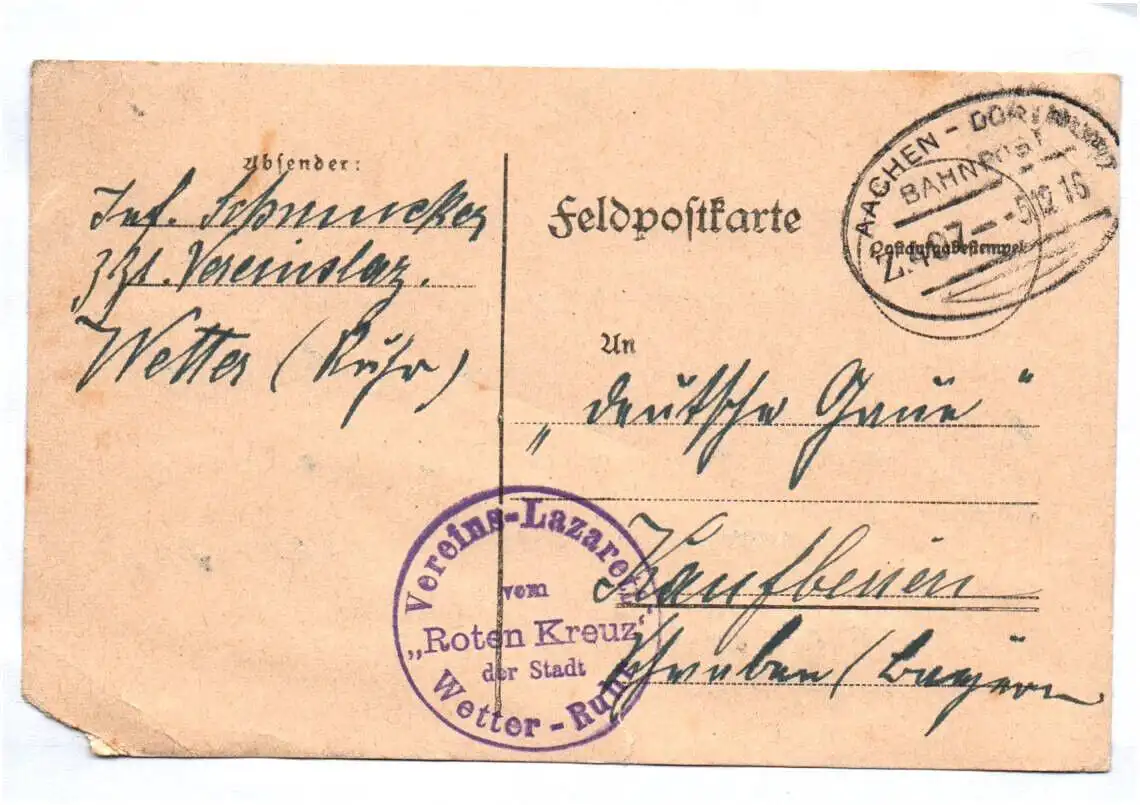 Absender:
Inf. Schmucker
zzt. Vereinslaz.
Wetter (Ruhr)
Feldpostkarte
AACHEN - DORTMUND
BAHNPOST
Z. 407 - 5.12.16
Postaufgabestempel
An
„deutsche Gaue“
Kaufbeuren
Schwaben (Bayern
Vereins-Lazarett
vom
„Roten Kreuz“
der Stadt
Wetter-Ruhr